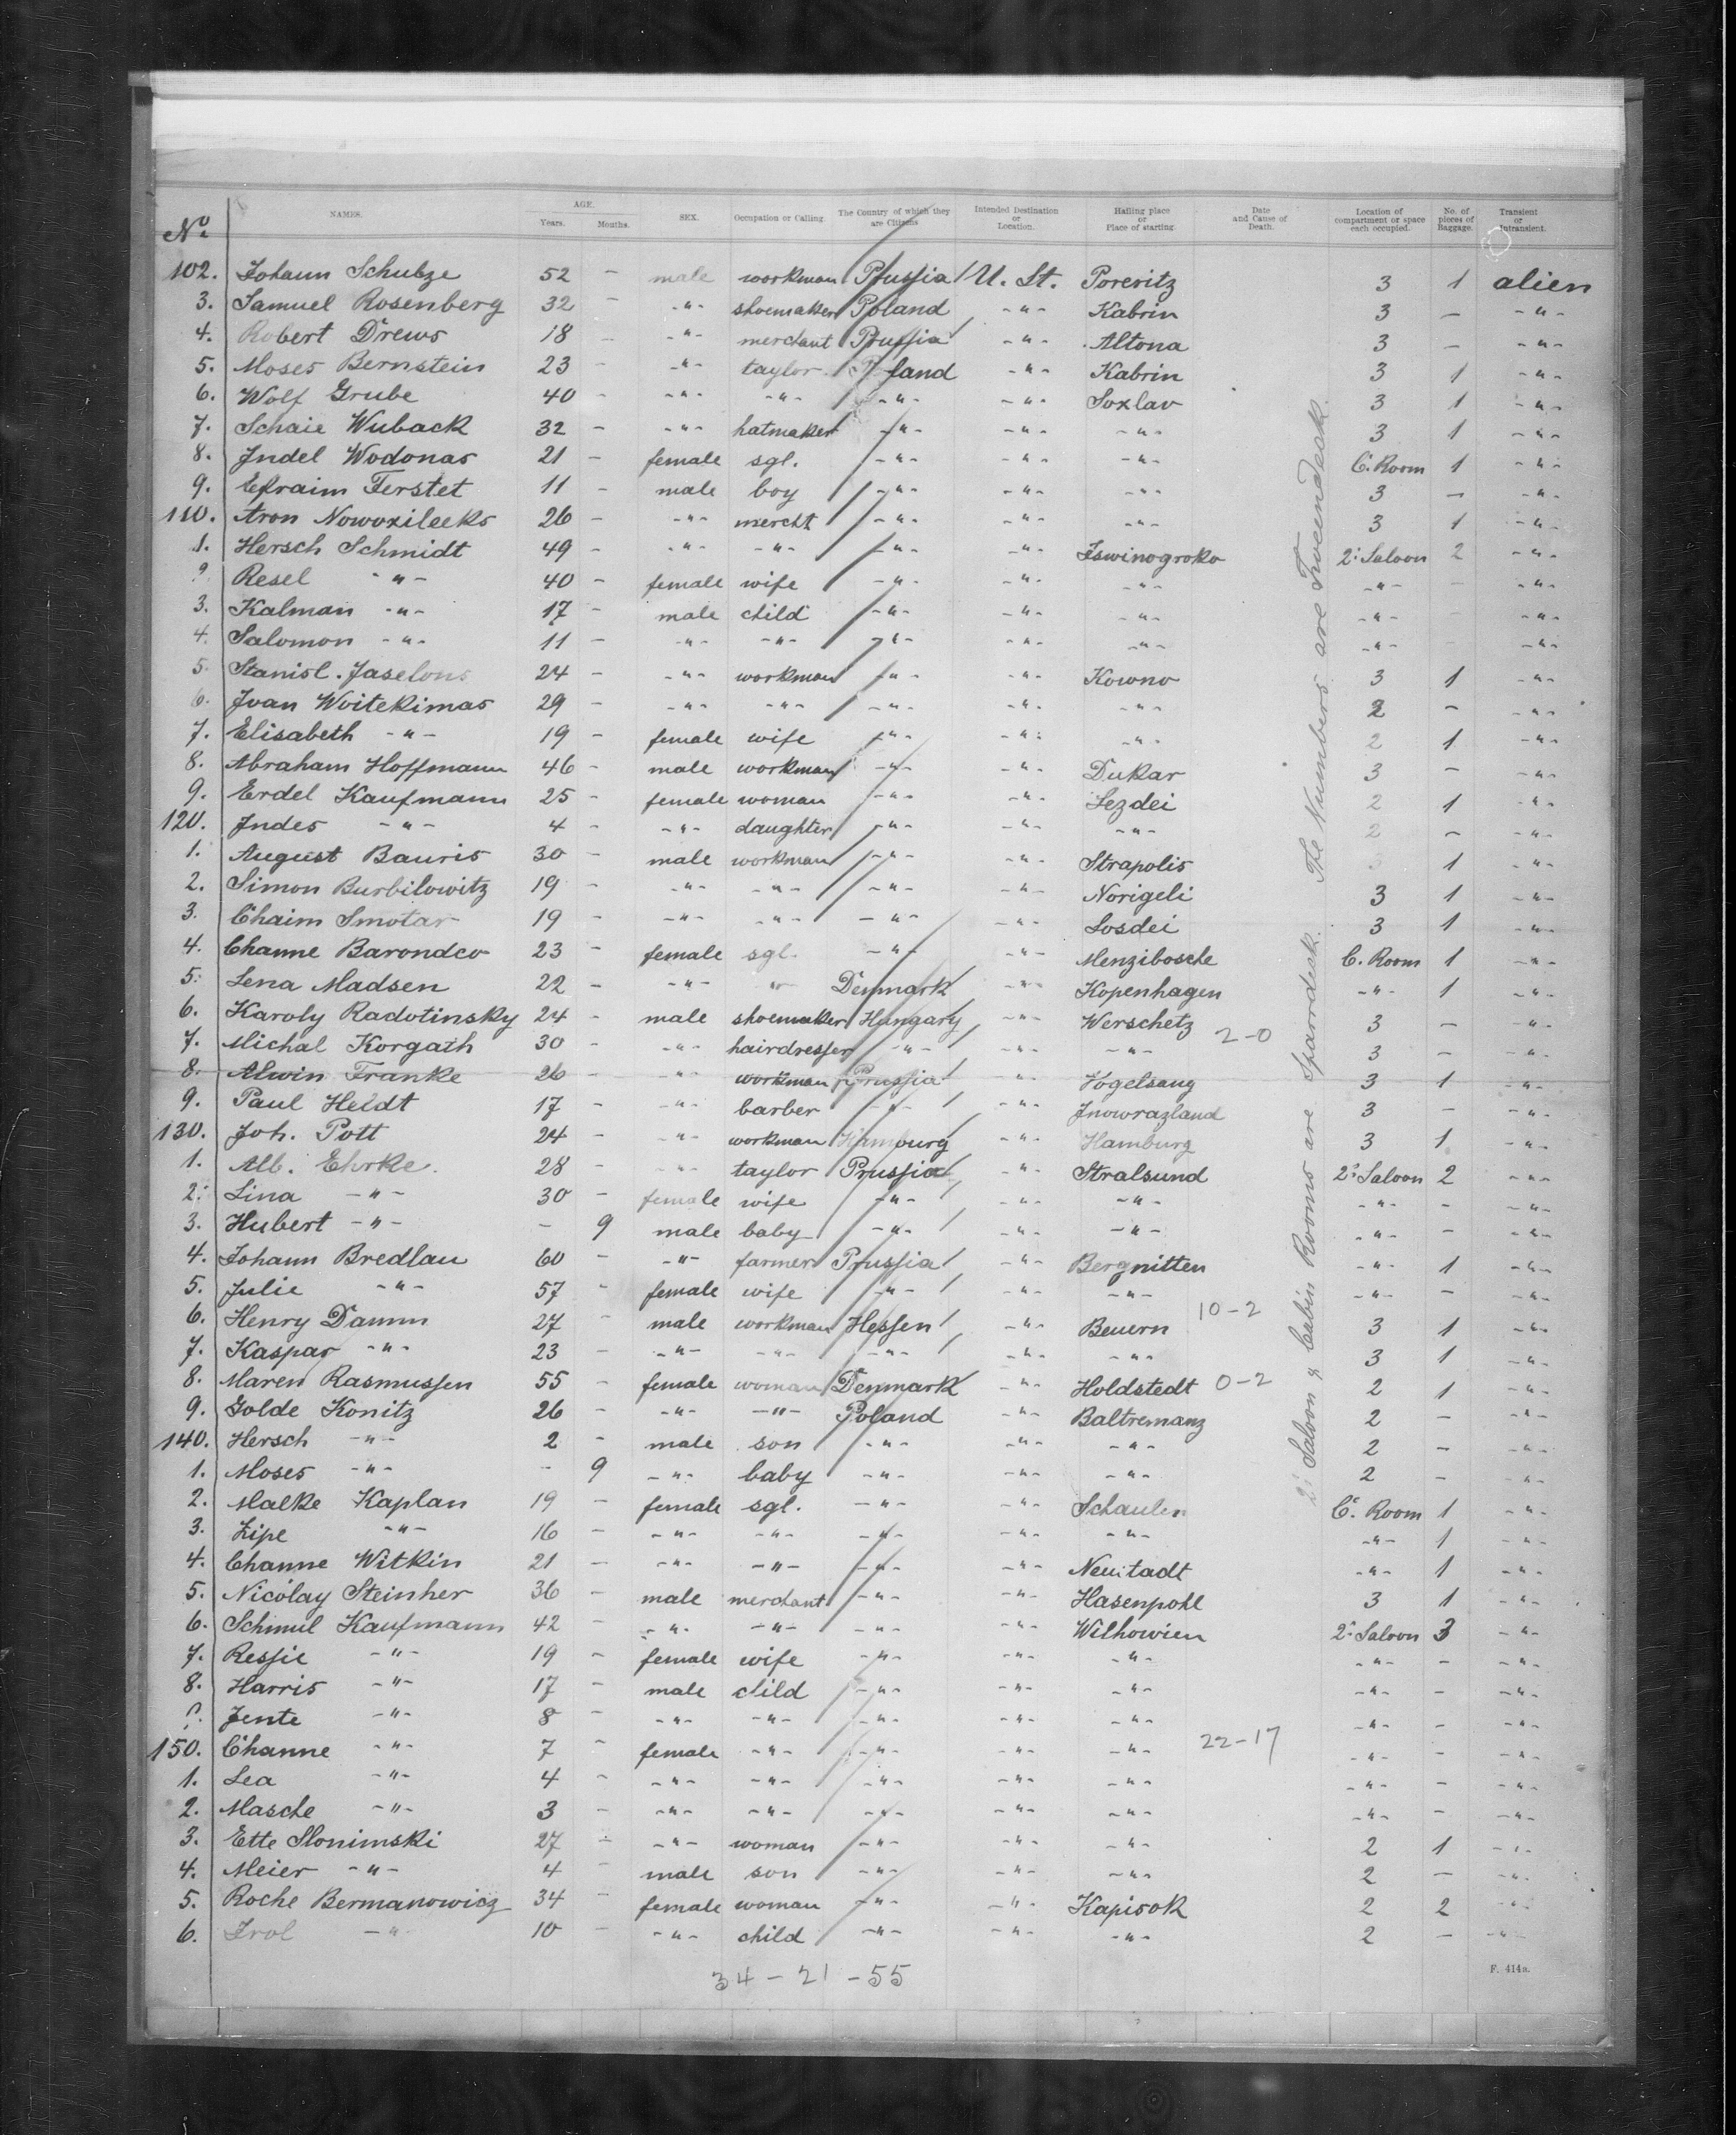 No NAMES. AGE. Years. Months. SEX. Occupation or Calling. The Country of which they are Citizens Intended Destination or Location. Hailing place or Place of starting. Date and Cause of Death. Location of compartment or space each occupied. No. of pieces of Baggage. Transient or Intransient.
102. Johann Schulze 52 - male workman Prussia U. St. Poreritz 3 1 alien
3. Samuel Rosenberg 32 - -"- shoemaker Poland -"- Kabrin 3 - -"-
4. Robert Drews 18 - -"- merchant Prussia -"- Altona 3 - -"-
5. Moses Bernstein 23 - -"- taylor Poland -"- Kabrin 3 1 -"-
6. Wolf Grube 40 - -"- -"- -"- -"- Soxlav 3 1 -"-
7. Schaie Wuback 32 - -"- hatmaker -"- -"- -"- 3 1 -"-
8. Jndel Wodonas 21 - female sgl. -"- -"- -"- C. Room 1 -"-
9. Efraim Ferstet 11 - male boy -"- -"- -"- 3 - -"-
110. Aron Nowoxileeks 26 - -"- mercht -"- -"- -"- 3 1 -"-
1. Hersch Schmidt 49 - -"- -"- -"- -"- Iswinogroko 2: Saloon 2 -"-
2 Resel -"- 40 - female wife -"- -"- -"- -"- - -"-
3. Kalman -"- 17 - male child -"- -"- -"- -"- -"-
4. Salomon -"- 11 - -"- -"- -"- -"- -"- -"- -"-
5. Stanisl. Jaselons 24 - -"- workman -"- -"- Kowno 3 1 -"-
6. Jvan Woitekimas 29 - -"- -"- -"- -"- -"- 2 - -"-
7. Elisabeth -"- 19 - female wife -"- -"- -"- 2 1 -"-
8. Abraham Hoffmann 46 - male workman -"- -"- Dukar 3 - -"-
9. Erdel Kaufmann 25 - female woman -"- -"- Lezdei 2 1 -"-
120. Jndes -"- 4 - -"- daughter -"- -"- -"- 2 - -"-
1. August Bauris 30 - male workman -"- -"- Strapolis 3 1 -"-
2. Simon Burbilowitz 19 - -"- -"- -"- -"- Norigeli 3 1 -"-
3. Chaim Smotar 19 - -"- -"- -"- -"- Losdei 3 1 -"-
4. Channe Barondco 23 - female sgl. -"- -"- Menzibosche C. Room 1 -"-
5. Lena Madsen 22 - -"- -"- Denmark -"- Kopenhagen -"- 1 -"-
6. Karoly Radotinsky 24 - male shoemaker Hungary -"- Werschetz 2-0 3 - -"-
7. Michal Korgath 30 - -"- hairdresser -"- -"- -"- 3 - -"-
8. Alwin Franke 26 - -"- workman Prussia -"- Vogelsang 3 1 -"-
9. Paul Heldt 17 - -"- barber -"- -"- Jnowrazland 3 - -"-
130. Joh. Pott 24 - -"- workman Hamburg -"- Hamburg 3 1 -"-
1. Alb. Ehrke. 28 - -"- taylor Prussia -"- Stralsund 2: Saloon 2 -"-
2. Lina -"- 30 - female wife -"- -"- -"- -"- - -"-
3. Hubert -"- - 9 male baby -"- -"- -"- -"- - -"-
4. Johann Bredlau 60 - -"- farmer Prussia -"- Bergnitten -"- 1 -"-
5. Julie -"- 57 - female wife -"- -"- -"- 10-2 -"- - -"-
6. Henry Damm 27 - male workman Hessen -"- Beuern 3 1 -"-
7. Kaspar -"- 23 - -"- -"- -"- -"- -"- 3 1 -"-
8. Maren Rasmussen 55 - female woman Denmark -"- Holdstedt 0-2 2 1 -"-
9. Golde Konitz 26 - -"- -"- Poland -"- Baltremanz 2 - -"-
140. Hersch -"- 2 - male son -"- -"- -"- 2 - -"-
1. Moses -"- - 9 -"- baby -"- -"- -"- 2 - -"-
2. Malke Kaplan 19 - female sgl. -"- -"- Schaulen C. Room 1 -"-
3. Zipe -"- 16 - -"- -"- -"- -"- -"- -"- 1 -"-
4. Channe Witkin 21 - -"- -"- -"- -"- Neustadt -"- 1 -"-
5. Nicolay Steinher 36 - male merchant -"- -"- Hasenpohl 3 1 -"-
6. Schmul Kaufmann 42 - -"- -"- -"- -"- Wilhowien 2: Saloon 3 -"-
7. Ressie -"- 19 - female wife -"- -"- -"- -"- - -"-
8. Harris -"- 17 - male child -"- -"- -"- -"- - -"-
9. Jente -"- 8 - -"- -"- -"- -"- -"- -"- - -"-
150. Channe -"- 7 - female -"- -"- -"- -"- 22-17 -"- - -"-
1. Lea -"- 4 - -"- -"- -"- -"- -"- -"- - -"-
2. Masche -"- 3 - -"- -"- -"- -"- -"- -"- - -"-
3. Ette Slonimski 27 - -"- woman -"- -"- -"- 2 1 -"-
4. Meier -"- 4 - male son -"- -"- -"- 2 - -"-
5. Roche Bermanowicz 34 - female woman -"- -"- Kapisok 2 2 -"-
6. Irol -"- 10 - -"- child -"- -"- -"- 2 - -"-
34-21-55
F. 414a.
2: Saloon & Cabin Rooms are Spardeck. The Numbers are Tweendeck.